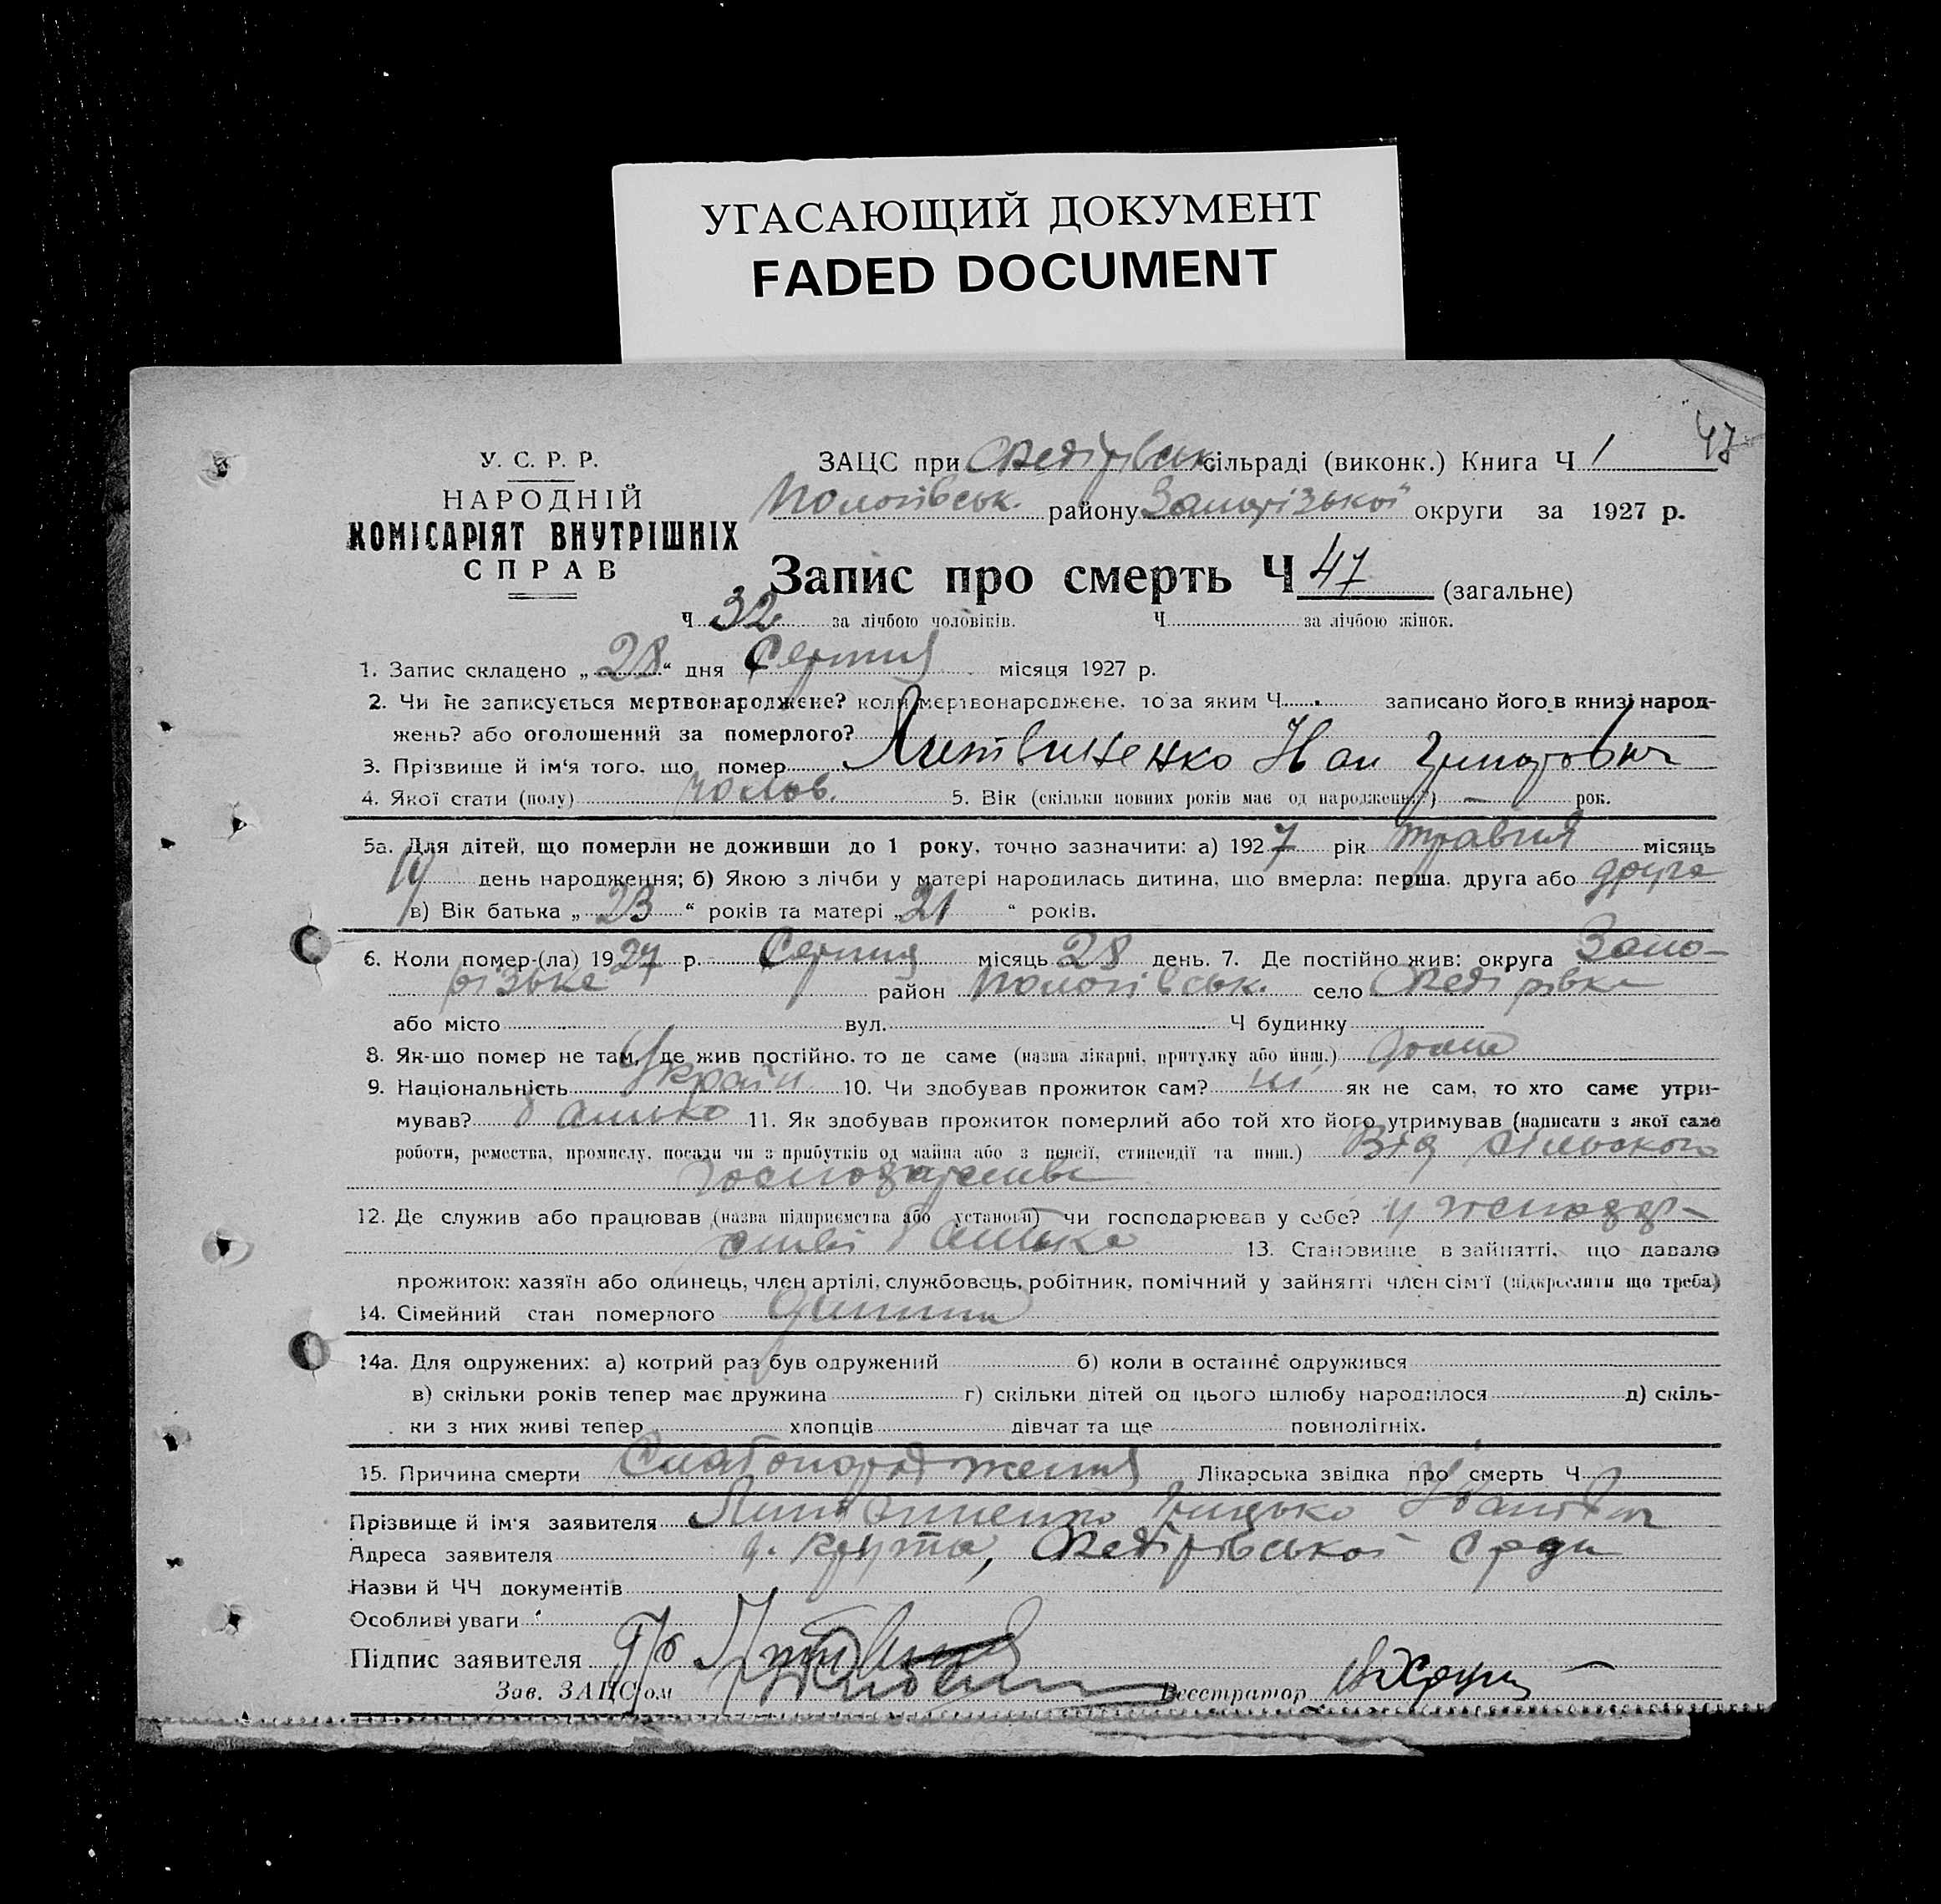 УГАСАЮЩИЙ ДОКУМЕНТ
FADED DOCUMENT
47
У. С. Р. Р.
НАРОДНІЙ
КОМІСАРІЯТ ВНУТРІШНІХ
СПРАВ
ЗАЦС при Федірівськ. сільраді (виконк.) Книга Ч 1
Пологівськ. району Запорізької округи за 1927 р.
Запис про смерть Ч 47 (загальне)
Ч 32 за лічбою чоловіків. Ч за лічбою жінок.
1. Запис складено „ 28 “ дня Серпня місяця 1927 р.
2. Чи не записується мертвонароджене? коли мертвонароджене, то за яким Ч. записано його в книзі народ-
жень? або оголошений за померлого?
3. Прізвище й ім'я того, що помер Литвиненко Іван Григорович
4. Якої стати (полу) чолов. 5. Вік (скільки повних років має од народження?) — рок.
5а. Для дітей, що померли не доживши до 1 року, точно зазначити: а) 1927 рік травня місяць
19 день народження; б) Якою з лічби у матері народилась дитина, що вмерла: перша, друга або друга
в) Вік батька „ 23 “ років та матері „ 21 “ років.
6. Коли помер-(ла) 1927 р. Серпня місяць 28 день. 7. Де постійно жив: округа Запо-
різька район Пологівськ. село Федірівка
або місто вул. Ч будинку
8. Як-що помер не там, де жив постійно, то де саме (назва лікарні, притулку або инш.) дома
9. Національність Україн. 10. Чи здобував прожиток сам? ні як не сам, то хто саме утри-
мував? батько 11. Як здобував прожиток померлий або той хто його утримував (написати з якої саме
роботи, ремества, промислу, посади чи з прибутків од майна або з пенсії, стипендії та инш.) Від сільського
господарства
12. Де служив або працював (назва підприємства або установи) чи господарював у себе? у господар-
стві батька 13. Становище в зайнятті, що давало
прожиток: хазяїн або одинець, член артілі, службовець, робітник, помічний у зайнятті член сім'ї (підкреслити що треба)
14. Сімейний стан померлого дитина
14а. Для одружених: а) котрий раз був одружений б) коли в останнє одружився
в) скільки років тепер має дружина г) скільки дітей од цього шлюбу народилося д) скіль-
ки з них живі тепер хлопців дівчат та ще повнолітніх.
15. Причина смерти Слабонародження Лікарська звідка про смерть Ч.
Прізвище й ім'я заявителя Литвиненко Грицько Іванович
Адреса заявителя Крута, Федірівської с ради
Назви й ЧЧ документів
Особливі уваги
Підпис заявителя
Зав. ЗАЦС'ом Реєстратор